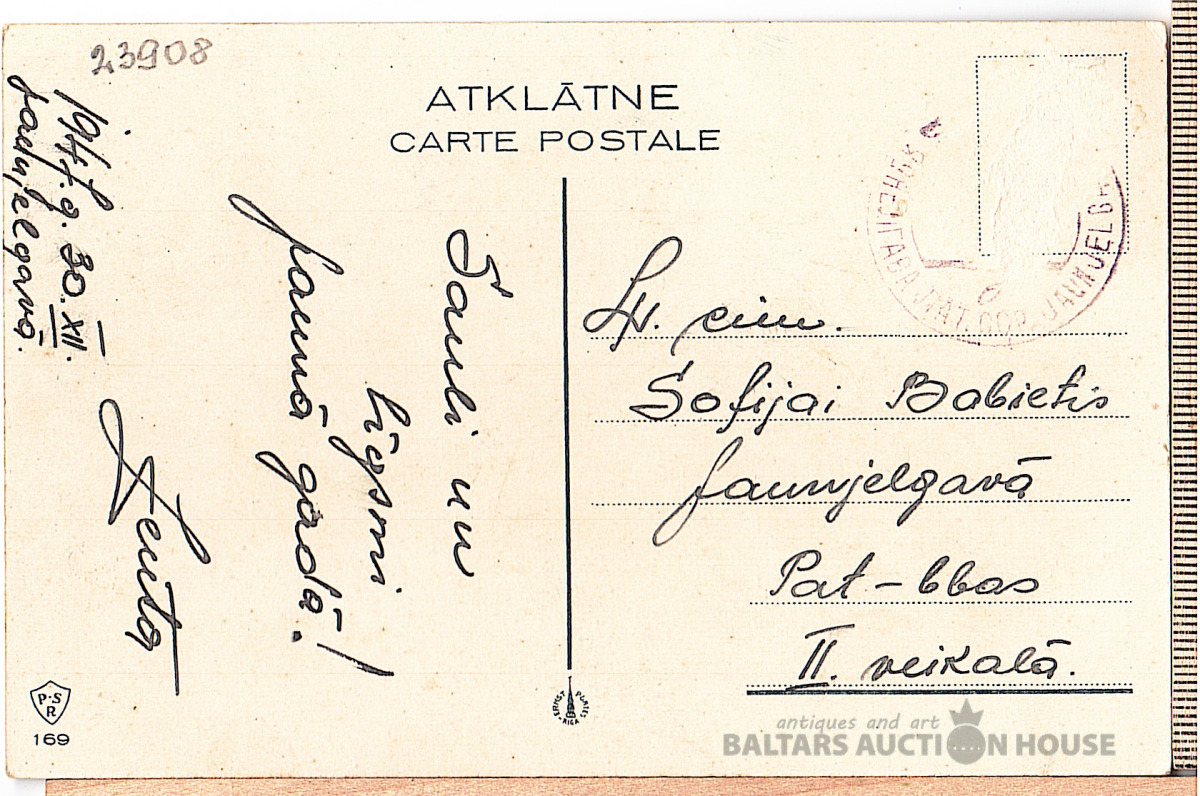 23908
ATKLĀTNE
CARTE POSTALE
194 g. 30. XII.
Jaunjelgavā.
Sauli un
līgsmi
jaunā gadā!
Zenta
Lv. cien.
Sofijai Babietis
Jaunjelgavā
Pat-bbas
II. veikalā.
JAUNJELGA
P.S
R
169
ERNST PLATES
RIGA
antiques and art
BALTARS AUCTION HOUSE